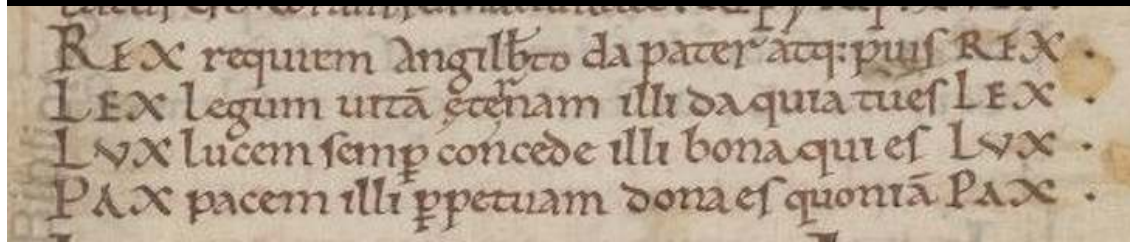 REX requiem Angilb̄to da pater atq: pius REX .
LEX legum uitā ęter̄nam illi da quia tu es LEX .
LVX lucem semꝑ concede illi bona qui es LVX .
PAX pacem illi ꝑpetuam dona es quoniā PAX .